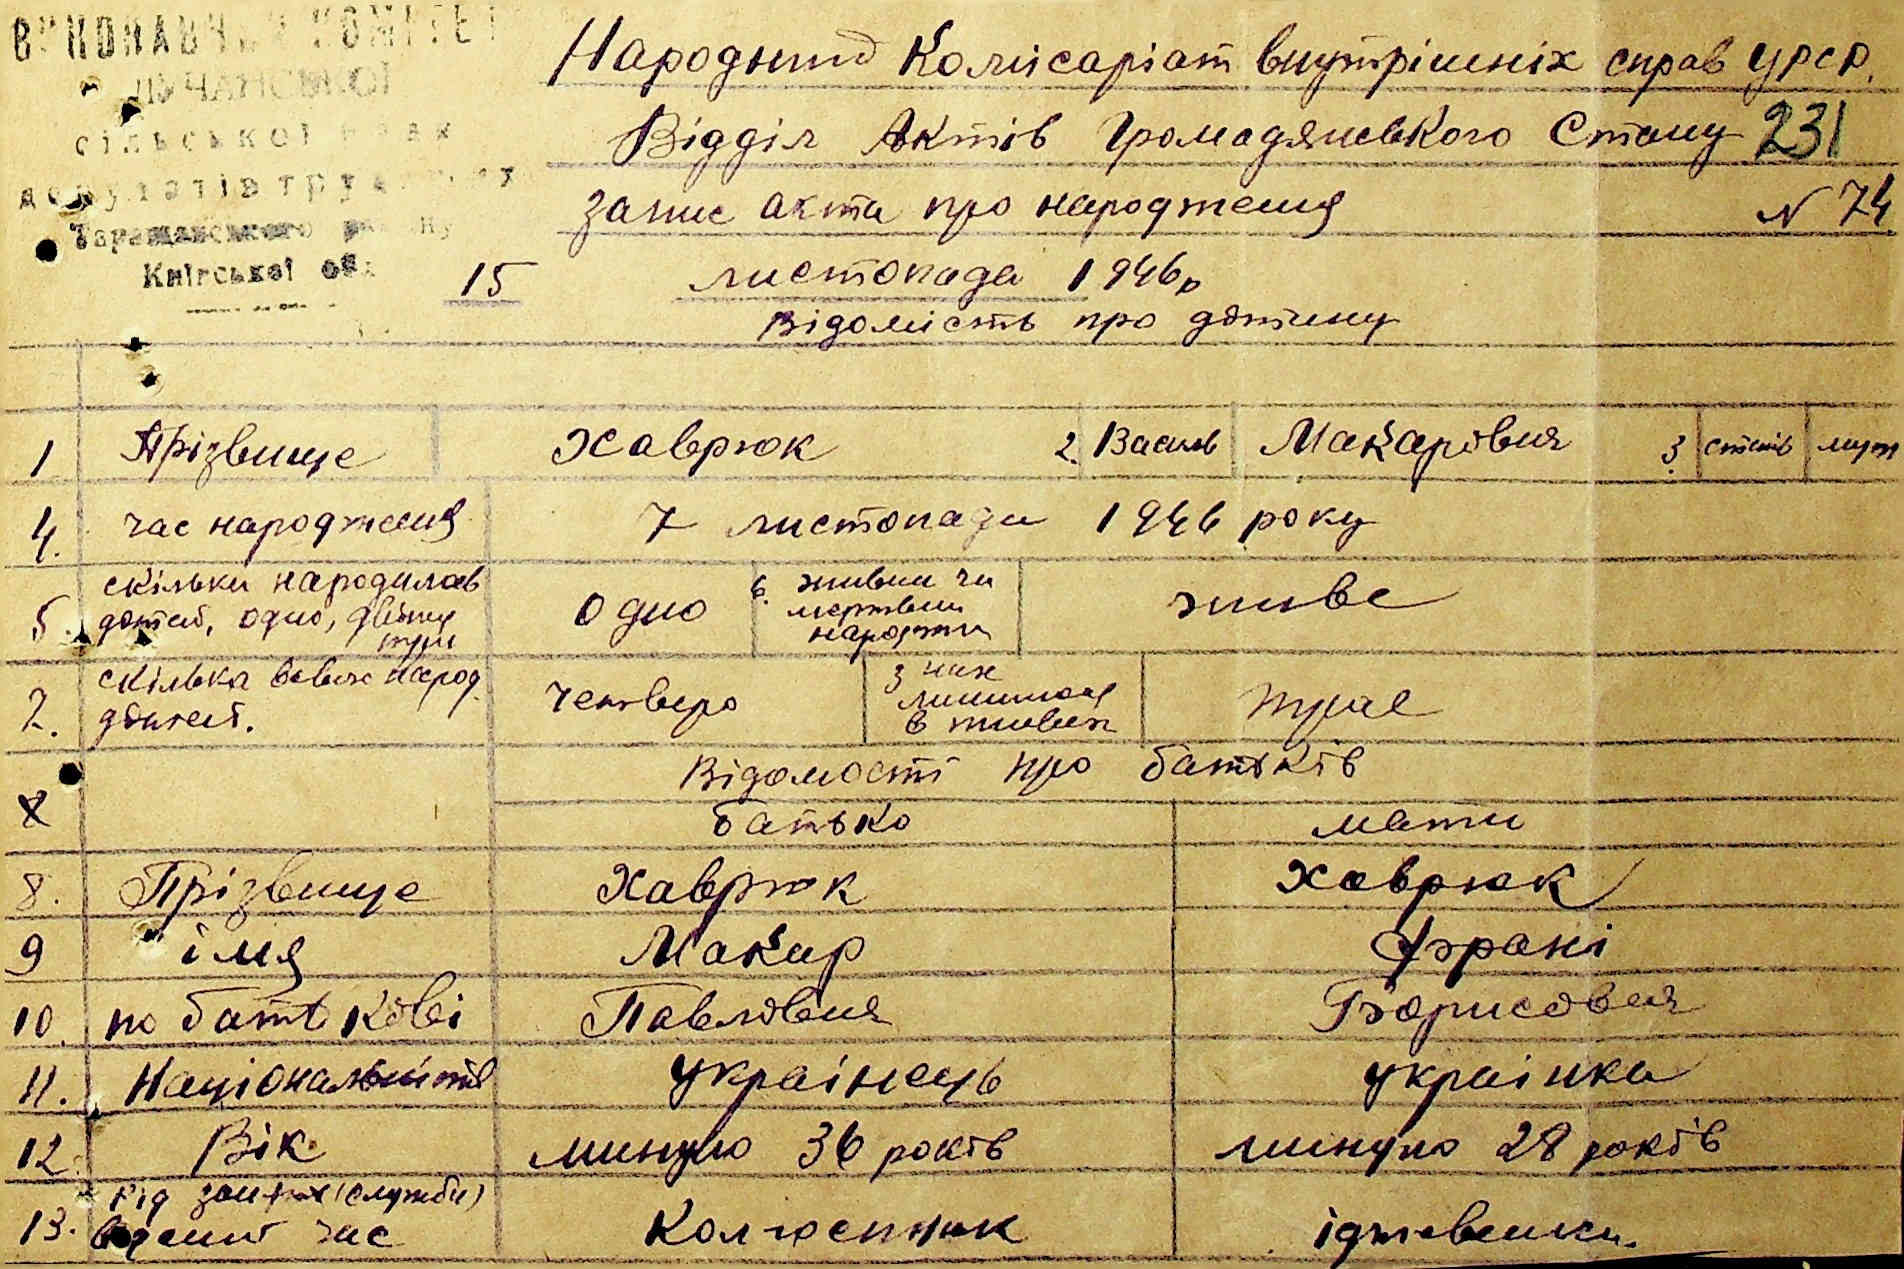 ВИКОНАВЧИЙ КОМІТЕТ
ЛУЧАНСЬКОЇ
сільської ради
депутатів трудящих
Таращанського району
Київської обл
Народний Комісаріат внутрішніх справ УРСР.
Відділ Актів Громадянського Стану 231
запис акта про народження N 74
15 листопада 1946р
Відомість про дѳтину
1 Прізвище Хаврюк 2. Василь Макарович 3. стать муж
4. час народження 7 листопада 1946 року
5. скільки народилось дѳтей, одно, двійня, трий одно 6. живим чи мертвим народжен живе
7. скілька всьих народ. дѳтей. четверо з них лишилося в живих троє
Відомості про батьків
8 батько мати
8. Прізвище Хаврюк Хаврюк
9 імя Макар Франі
10. по батькові Павлович Борисовна
11. Національність українець українка
12. Вік минуло 36 років минуло 28 років
13. Рід занять (служби) в даний час Колгоспник